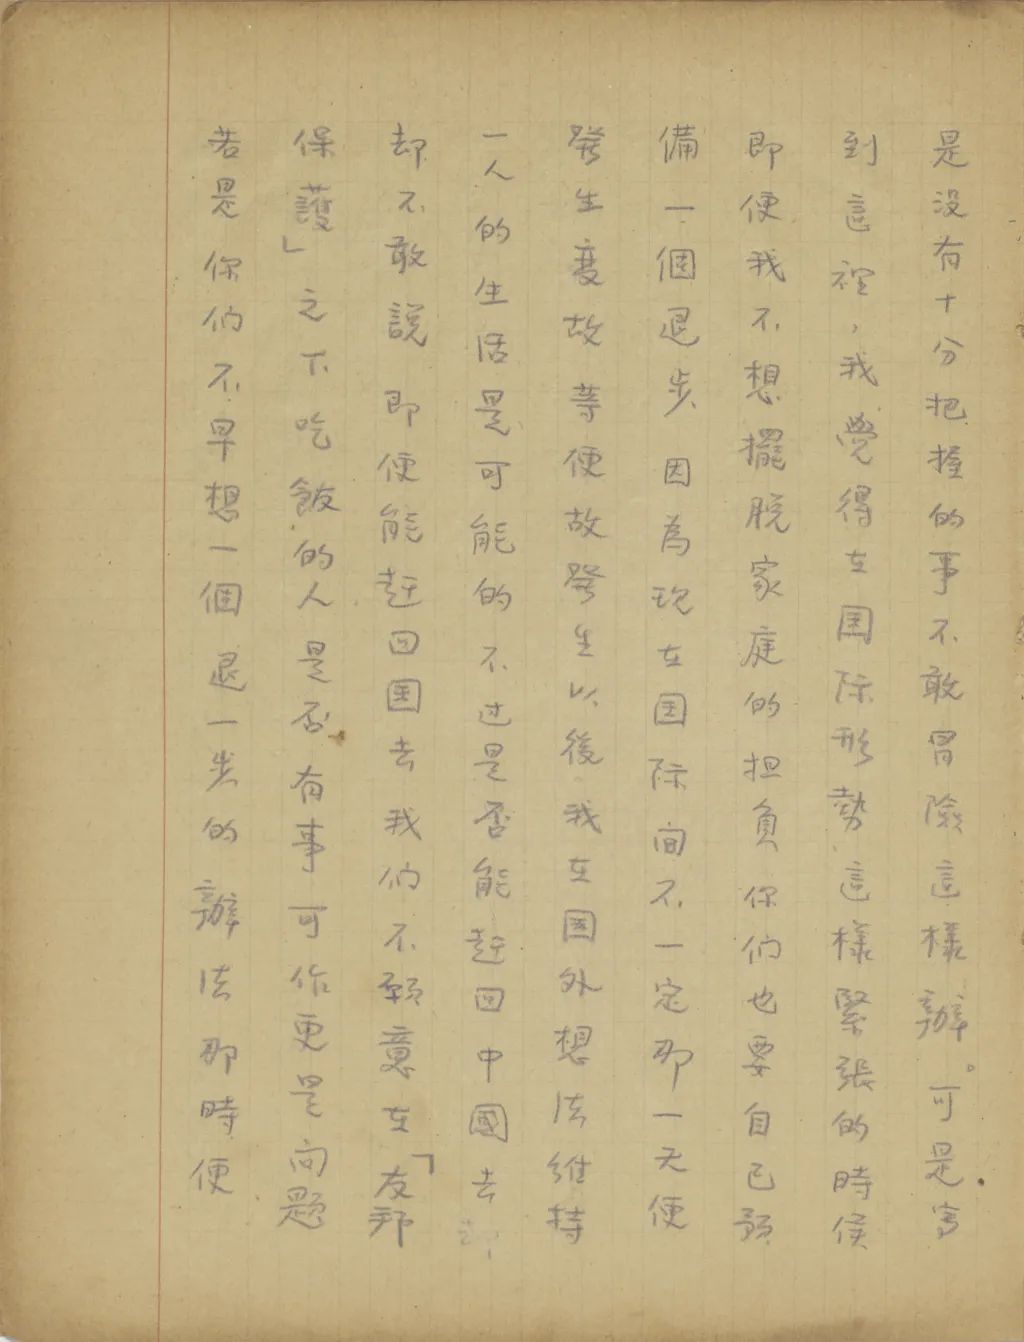 是没有十分把握的事不敢冒險這樣辦。可是寫
到這裡，我覺得在国际形勢這樣緊張的時候
即便我不想擺脱家庭的担負你们也要自己預
備一個退步因為現在国际间不一定那一天便
發生变故等变故發生以後我在国外想法維持
一人的生活是可能的不过是否能赶回中國去
却不敢說即便能赶回国去我们不願意在「友邦
保護」之下吃飯的人是否有事可作更是问题
若是你们不早想一個退一步的辦法那時便